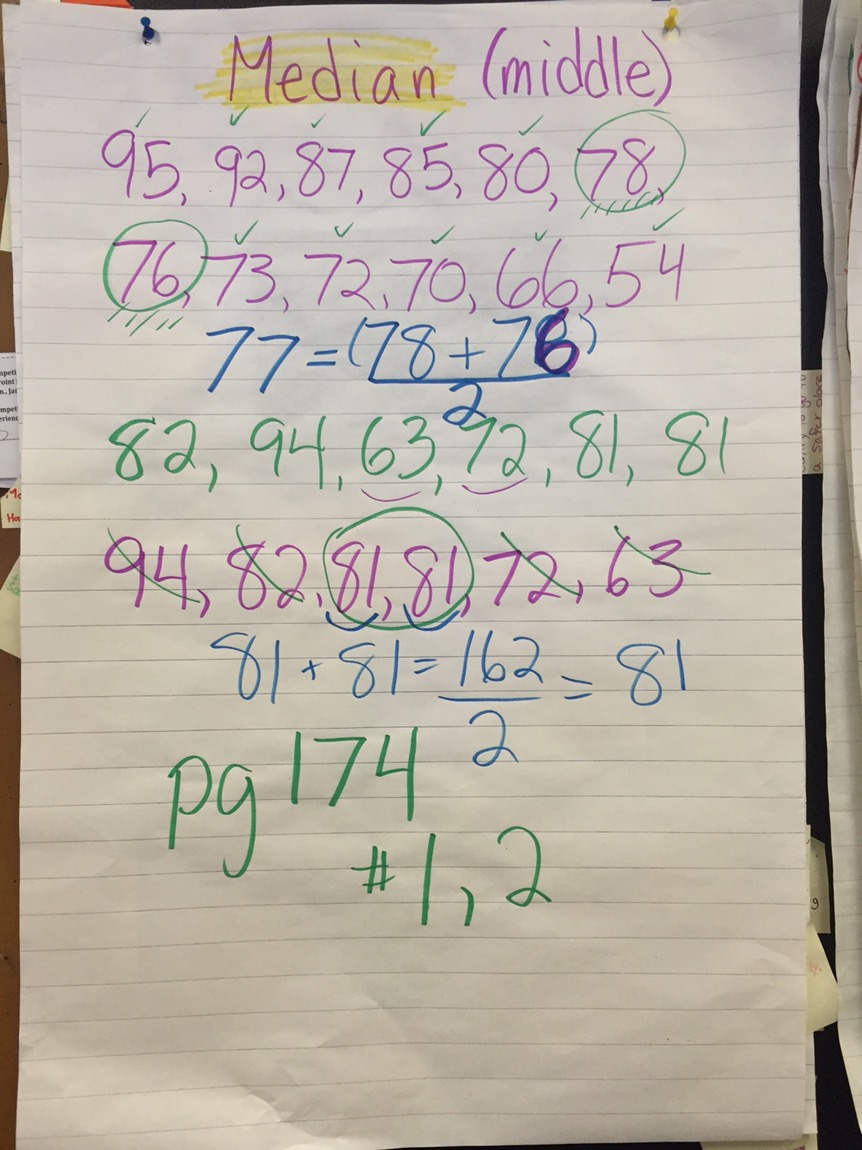 Median (middle)
95, 92, 87, 85, 80, 78,
76, 73, 72, 70, 66, 54
77 = (78 + 76)
2
82, 94, 63, 72, 81, 81
94, 82, 81, 81, 72, 63
81 + 81 = 162 = 81
2
pg 174
#1, 2
a safer place